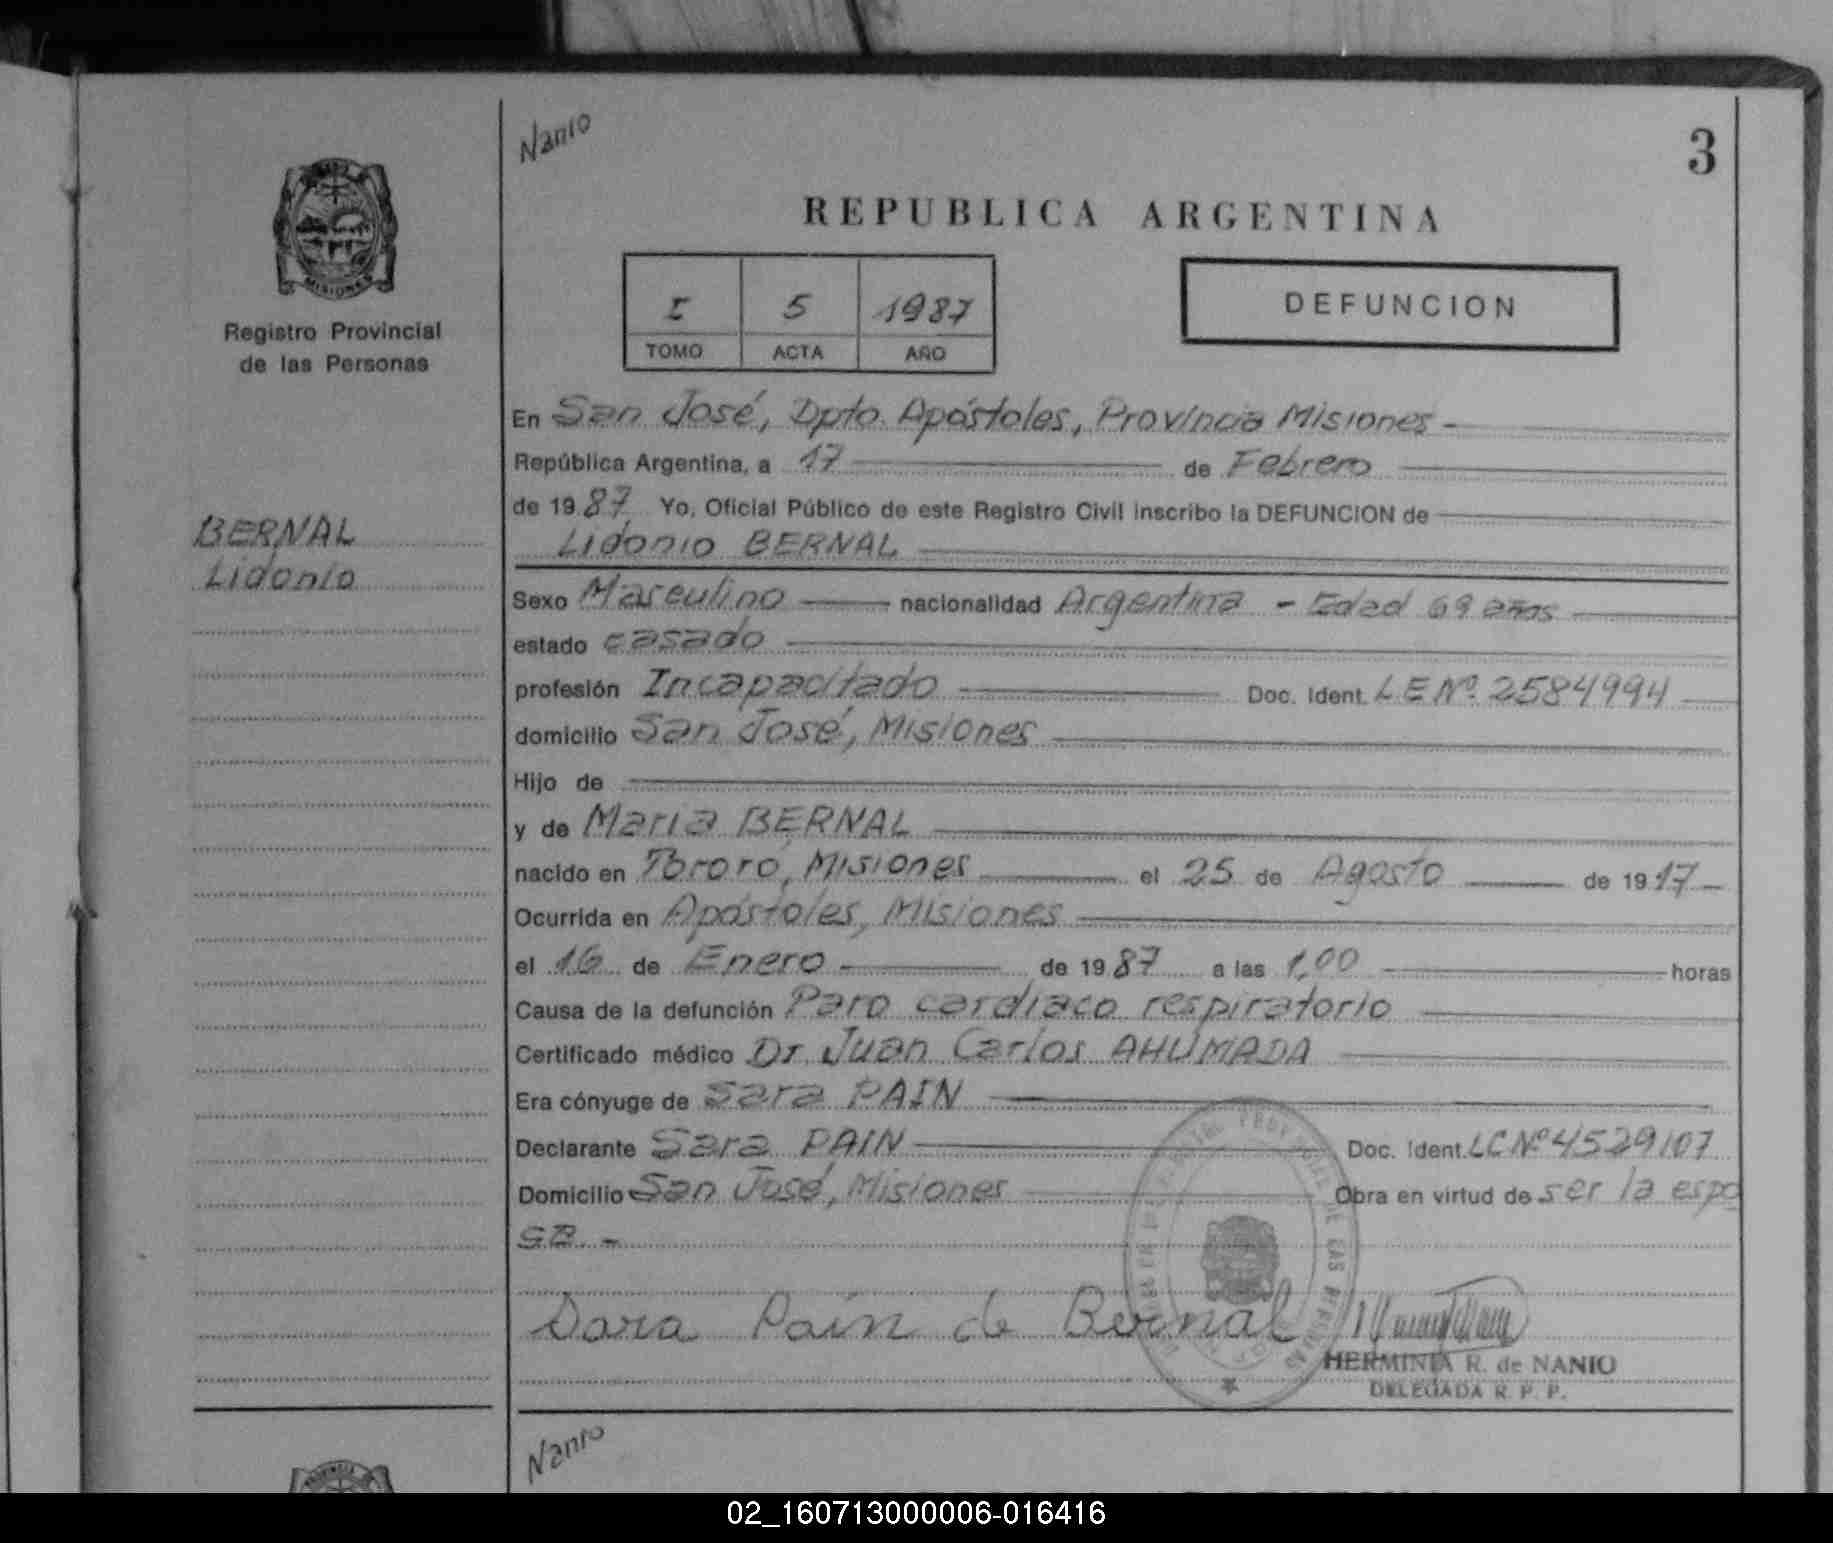 Nanio
3
REPUBLICA ARGENTINA
I 5 1987
TOMO ACTA AÑO
DEFUNCION
MISIONES
Registro Provincial
de las Personas
BERNAL
Lidonio
En San José, Dpto. Apóstoles, Provincia Misiones -
República Argentina, a 17 de Febrero
de 1987 Yo, Oficial Público de este Registro Civil inscribo la DEFUNCION de
Lidonio BERNAL
Sexo Masculino nacionalidad Argentina - Edad 69 años
estado casado
profesión Incapacitado Doc. Ident. LE Nº 2584994
domicilio San José, Misiones
Hijo de
y de Maria BERNAL
nacido en Tororó, Misiones el 25 de Agosto de 1917 -
Ocurrida en Apóstoles, Misiones
el 16 de Enero de 1987 a las 1,00 horas
Causa de la defunción Paro cardíaco respiratorio
Certificado médico Dr Juan Carlos AHUMADA
Era cónyuge de Sara PAIN
Declarante Sara PAIN Doc. Ident. LC Nº 4529107
Domicilio San José, Misiones Obra en virtud de ser la espo
sa -
Sara Pain de Bernal
HERMINIA R. de NANIO
DELEGADA R. P. P.
Nanio
02_160713000006-016416